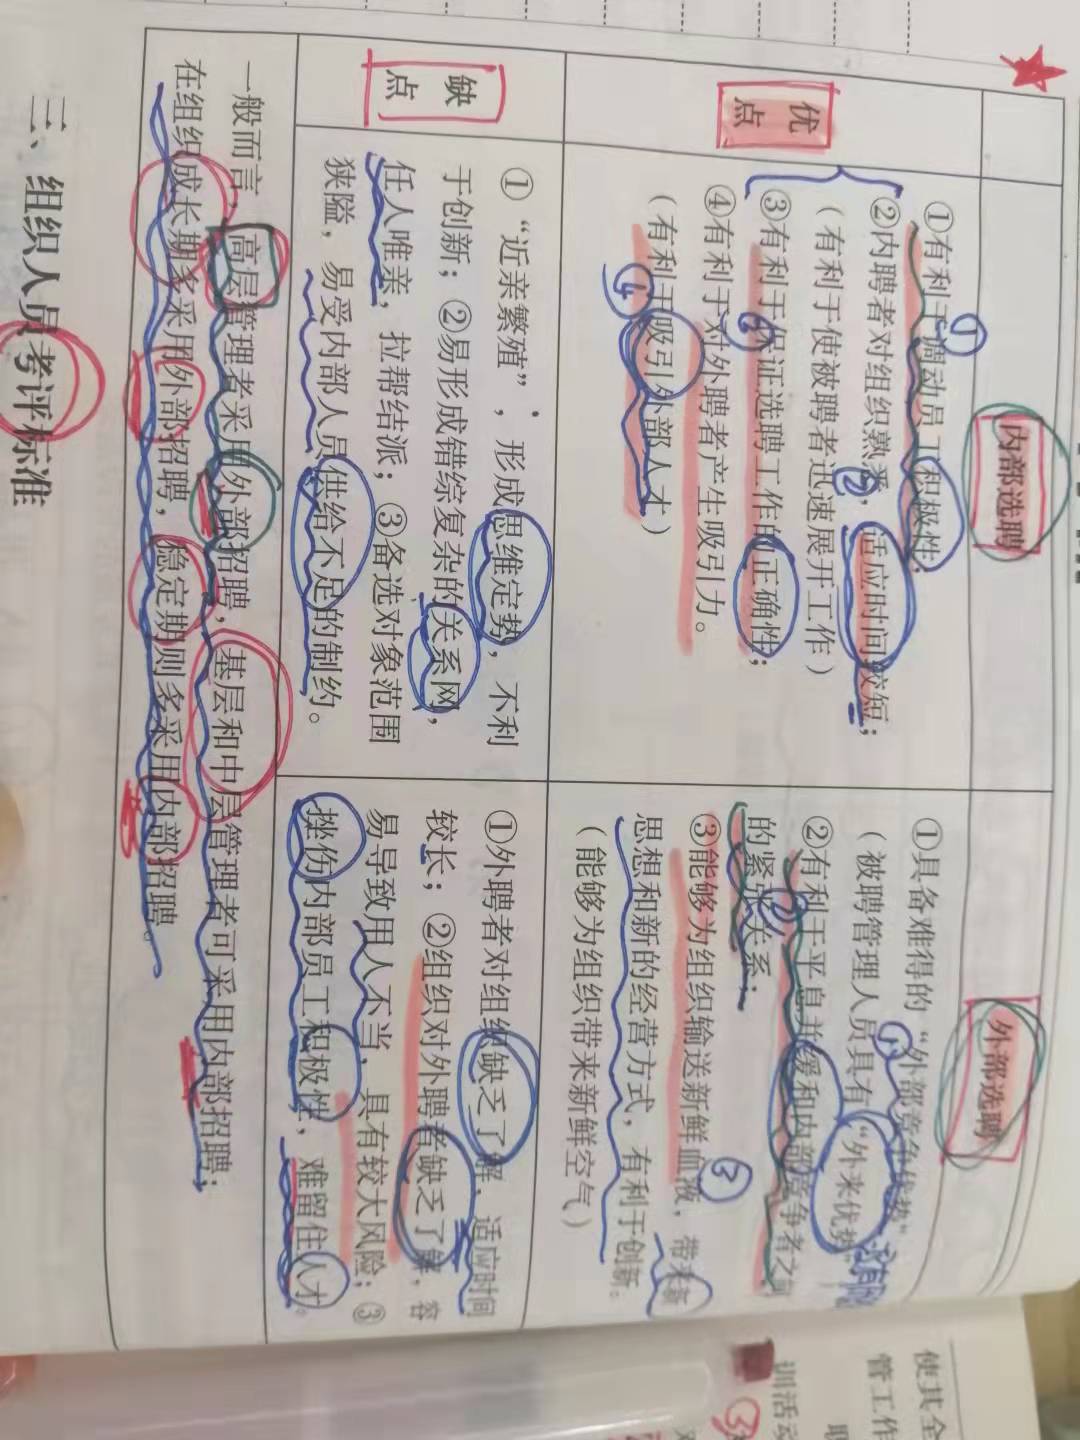 内部选聘
外部选聘
优
点
①有利于调动员工积极性;
②内聘者对组织熟悉，适应时间较短;
（有利于使被聘者迅速展开工作）
③有利于保证选聘工作的正确性;
④有利于对外聘者产生吸引力。
（有利于吸引外部人才）
①
②
③
④
①具备难得的“外部竞争优势”
（被聘管理人员具有“外来优势”
②有利于平息并缓和内部竞争者之间
的紧张关系;
③能够为组织输送新鲜血液，带来新
思想和新的经营方式，有利于创新。
（能够为组织带来新鲜空气）
①
②
③
缺
点
①“近亲繁殖”，形成思维定势，不利
于创新；②易形成错综复杂的关系网，
任人唯亲，拉帮结派；③备选对象范围
狭隘，易受内部人员供给不足的制约。
①外聘者对组织缺乏了解，适应时间
较长；②组织对外聘者缺乏了解，容
易导致用人不当，具有较大风险；③
挫伤内部员工积极性，难留住人才。
一般而言，高层管理者采用外部招聘，基层和中层管理者可采用内部招聘；
在组织成长期多采用外部招聘，稳定期则多采用内部招聘。
三、组织人员考评标准
使其全
管工作
职
训活动
③